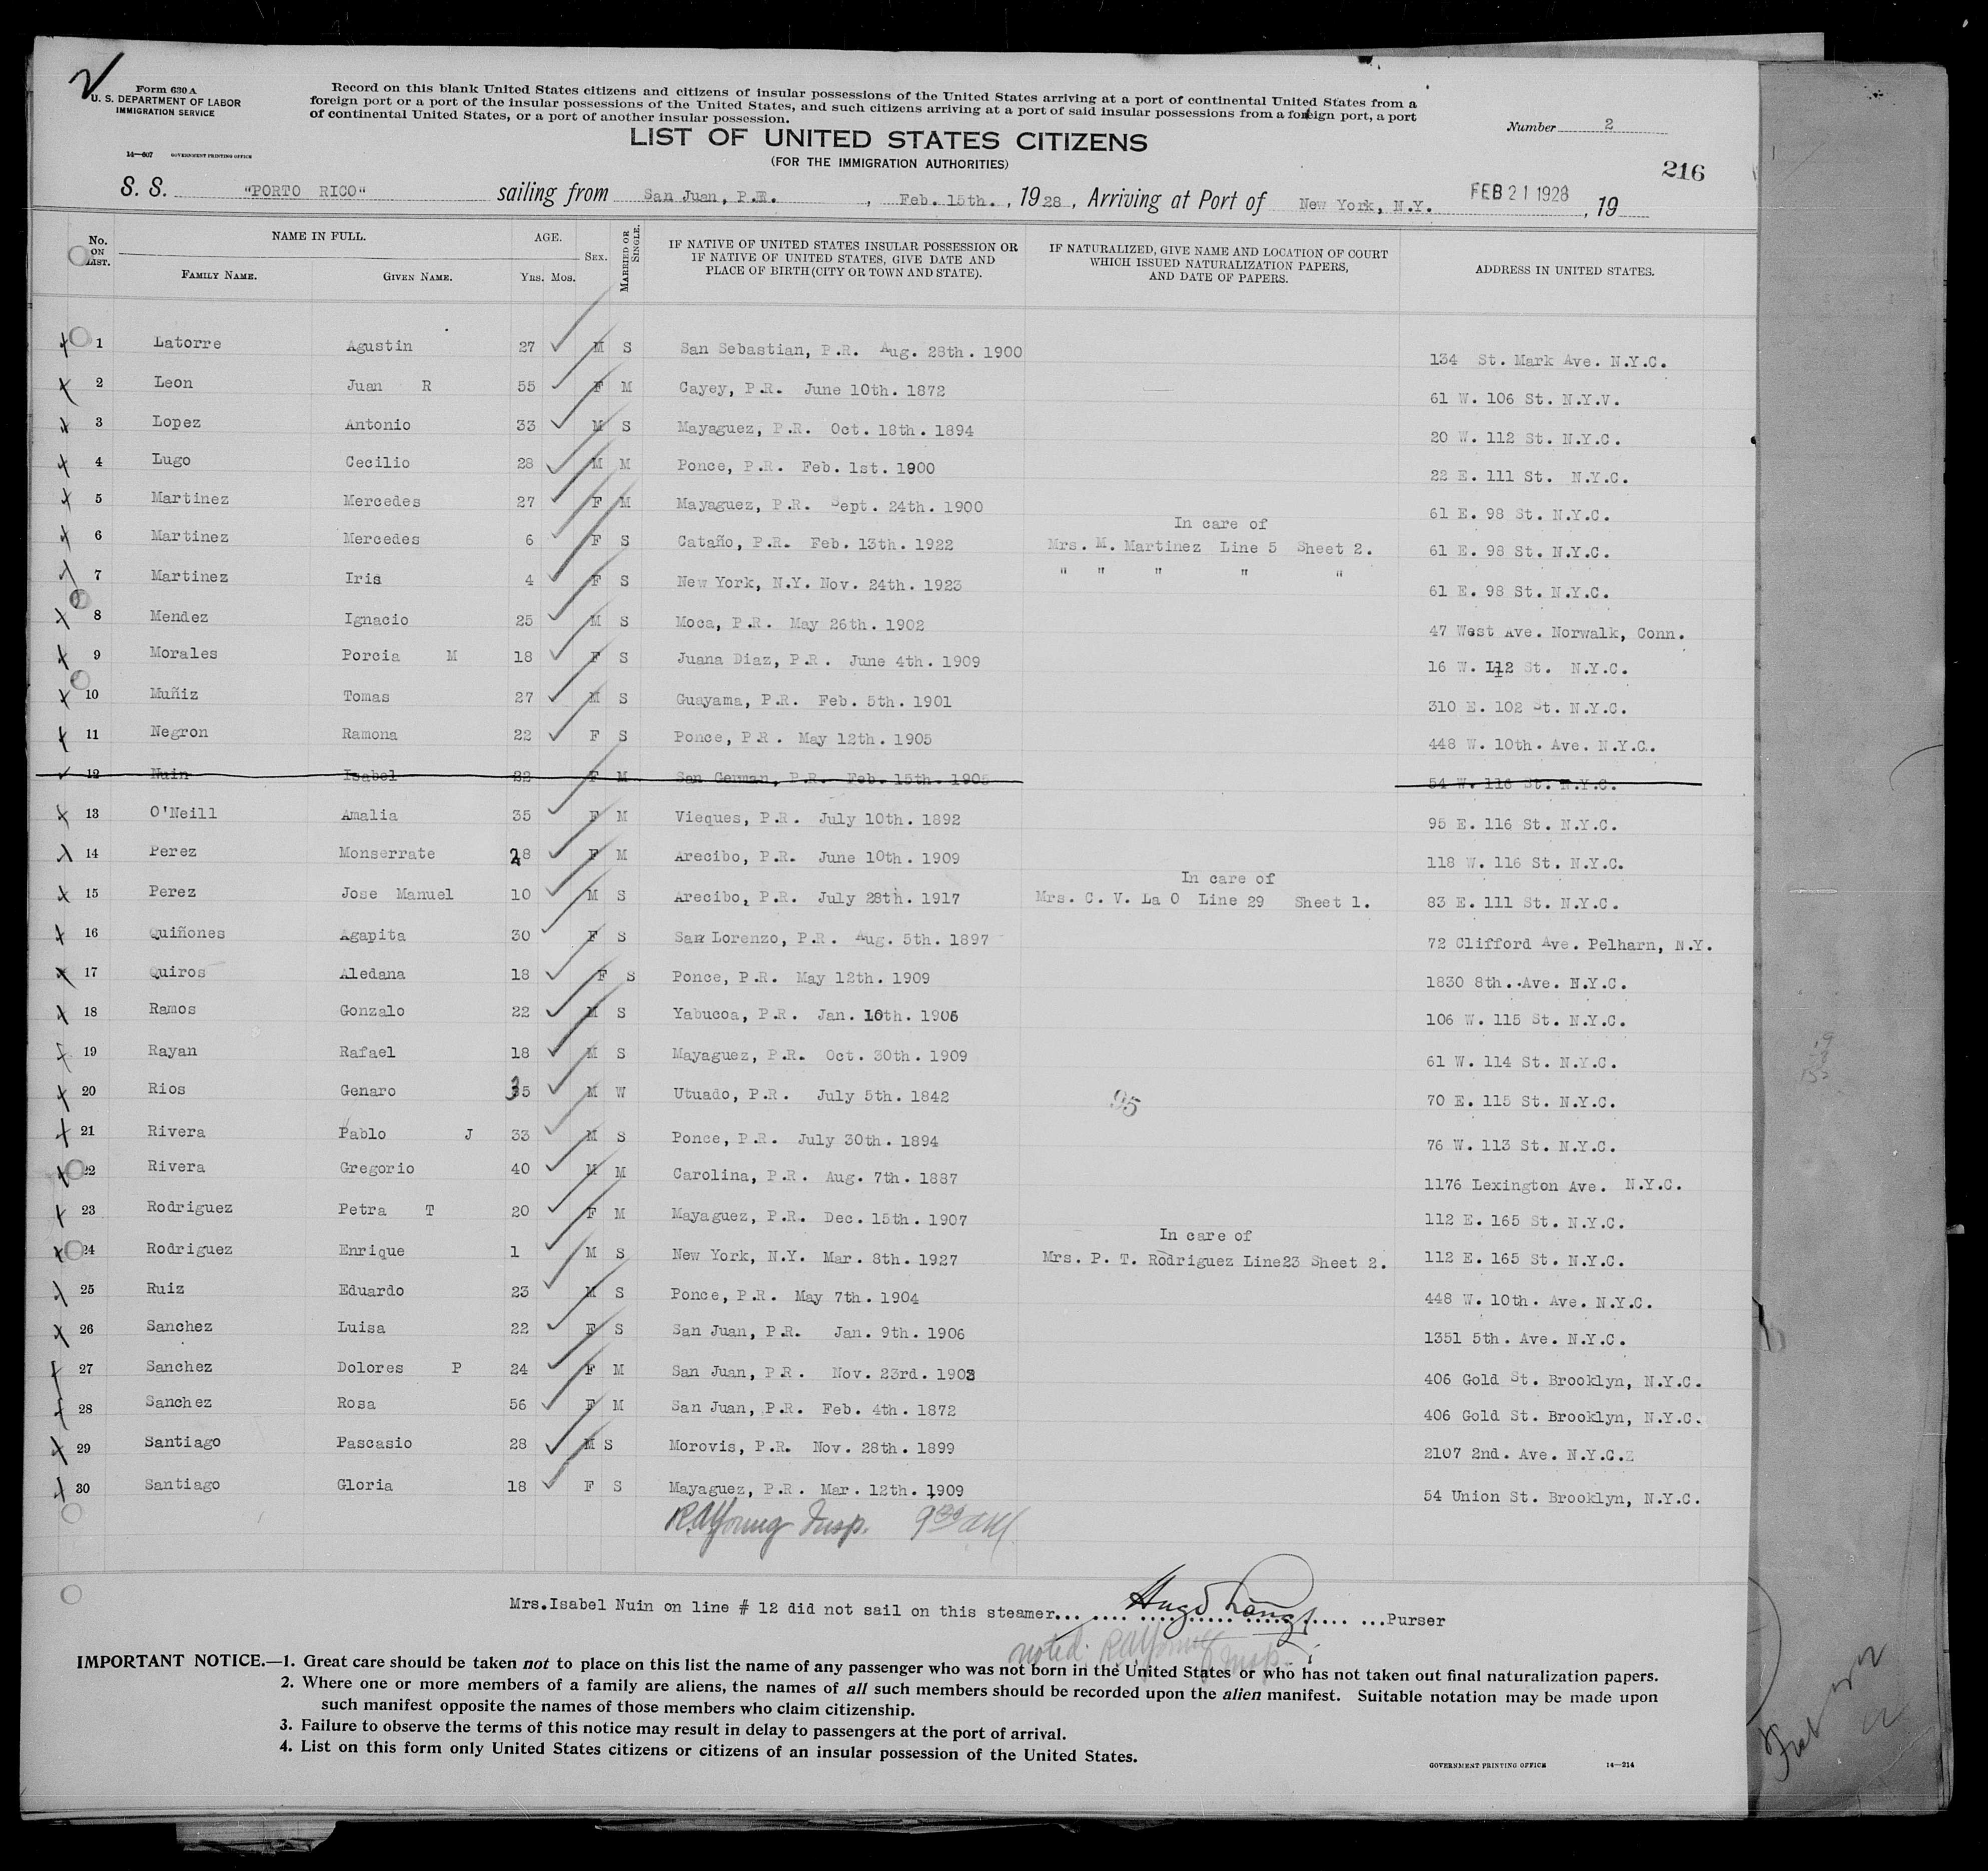 Form 630 A
U. S. DEPARTMENT OF LABOR
IMMIGRATION SERVICE
14—607 GOVERNMENT PRINTING OFFICE
Record on this blank United States citizens and citizens of insular possessions of the United States arriving at a port of continental United States from a
foreign port or a port of the insular possessions of the United States, and such citizens arriving at a port of said insular possessions from a foreign port, a port
of continental United States, or a port of another insular possession.
LIST OF UNITED STATES CITIZENS
(FOR THE IMMIGRATION AUTHORITIES)
Number 2
216
S. S. "PORTO RICO" sailing from San Juan, P.R. , Feb. 15th. , 1928 , Arriving at Port of New York, N.Y. FEB 21 1928 , 19
No. ON LIST. NAME IN FULL. FAMILY NAME. GIVEN NAME. AGE. YRS. MOS. SEX. MARRIED OR SINGLE. IF NATIVE OF UNITED STATES INSULAR POSSESSION OR IF NATIVE OF UNITED STATES, GIVE DATE AND PLACE OF BIRTH (CITY OR TOWN AND STATE). IF NATURALIZED, GIVE NAME AND LOCATION OF COURT WHICH ISSUED NATURALIZATION PAPERS, AND DATE OF PAPERS. ADDRESS IN UNITED STATES.
1 Latorre Agustin 27 M S San Sebastian, P.R. Aug. 28th. 1900 134 St. Mark Ave. N.Y.C.
2 Leon Juan R 55 F M Cayey, P.R. June 10th. 1872 61 W. 106 St. N.Y.V.
3 Lopez Antonio 33 M S Mayaguez, P.R. Oct. 18th. 1894 20 W. 112 St. N.Y.C.
4 Lugo Cecilio 28 M M Ponce, P.R. Feb. 1st. 1900 22 E. 111 St. N.Y.C.
5 Martinez Mercedes 27 F M Mayaguez, P.R. Sept. 24th. 1900 61 E. 98 St. N.Y.C.
In care of
6 Martinez Mercedes 6 F S Cataño, P.R. Feb. 13th. 1922 Mrs. M. Martinez Line 5 Sheet 2. 61 E. 98 St. N.Y.C.
7 Martinez Iris 4 F S New York, N.Y. Nov. 24th. 1923 " " " " " 61 E. 98 St. N.Y.C.
8 Mendez Ignacio 25 M S Moca, P.R. May 26th. 1902 47 West Ave. Norwalk, Conn.
9 Morales Porcia M 18 F S Juana Diaz, P.R. June 4th. 1909 16 W. 112 St. N.Y.C.
10 Muñiz Tomas 27 M S Guayama, P.R. Feb. 5th. 1901 310 E. 102 St. N.Y.C.
11 Negron Ramona 22 F S Ponce, P.R. May 12th. 1905 448 W. 10th. Ave. N.Y.C.
12 Nuin Isabel 22 F M San German, P.R. Feb. 15th. 1905 54 W. 116 St. N.Y.C.
13 O'Neill Amalia 35 F M Vieques, P.R. July 10th. 1892 95 E. 116 St. N.Y.C.
14 Perez Monserrate 28 F M Arecibo, P.R. June 10th. 1909 118 W. 116 St. N.Y.C.
In care of
15 Perez Jose Manuel 10 M S Arecibo, P.R. July 28th. 1917 Mrs. C. V. La O Line 29 Sheet 1. 83 E. 111 St. N.Y.C.
16 Quiñones Agapita 30 F S San Lorenzo, P.R. Aug. 5th. 1897 72 Clifford Ave. Pelharn, N.Y.
17 Quiros Aledana 18 F S Ponce, P.R. May 12th. 1909 1830 8th. Ave. N.Y.C.
18 Ramos Gonzalo 22 M S Yabucoa, P.R. Jan. 10th. 1906 106 W. 115 St. N.Y.C.
19 Rayan Rafael 18 M S Mayaguez, P.R. Oct. 30th. 1909 61 W. 114 St. N.Y.C.
20 Rios Genaro 35 M W Utuado, P.R. July 5th. 1842 95 70 E. 115 St. N.Y.C.
21 Rivera Pablo J 33 M S Ponce, P.R. July 30th. 1894 76 W. 113 St. N.Y.C.
22 Rivera Gregorio 40 M M Carolina, P.R. Aug. 7th. 1887 1176 Lexington Ave. N.Y.C.
23 Rodriguez Petra T 20 F M Mayaguez, P.R. Dec. 15th. 1907 112 E. 165 St. N.Y.C.
In care of
24 Rodriguez Enrique 1 M S New York, N.Y. Mar. 8th. 1927 Mrs. P. T. Rodriguez Line23 Sheet 2. 112 E. 165 St. N.Y.C.
25 Ruiz Eduardo 23 M S Ponce, P.R. May 7th. 1904 448 W. 10th. Ave. N.Y.C.
26 Sanchez Luisa 22 F S San Juan, P.R. Jan. 9th. 1906 1351 5th. Ave. N.Y.C.
27 Sanchez Dolores P 24 F M San Juan, P.R. Nov. 23rd. 1903 406 Gold St. Brooklyn, N.Y.C.
28 Sanchez Rosa 56 F M San Juan, P.R. Feb. 4th. 1872 406 Gold St. Brooklyn, N.Y.C.
29 Santiago Pascasio 28 M S Morovis, P.R. Nov. 28th. 1899 2107 2nd. Ave. N.Y.C.
30 Santiago Gloria 18 F S Mayaguez, P.R. Mar. 12th. 1909 54 Union St. Brooklyn, N.Y.C.
RAYoung Insp. 9 30 AM
Mrs.Isabel Nuin on line # 12 did not sail on this steamer... Purser
noted: RAYoung Insp.
IMPORTANT NOTICE.—1. Great care should be taken not to place on this list the name of any passenger who was not born in the United States or who has not taken out final naturalization papers.
2. Where one or more members of a family are aliens, the names of all such members should be recorded upon the alien manifest. Suitable notation may be made upon
such manifest opposite the names of those members who claim citizenship.
3. Failure to observe the terms of this notice may result in delay to passengers at the port of arrival.
4. List on this form only United States citizens or citizens of an insular possession of the United States.
GOVERNMENT PRINTING OFFICE 14—214